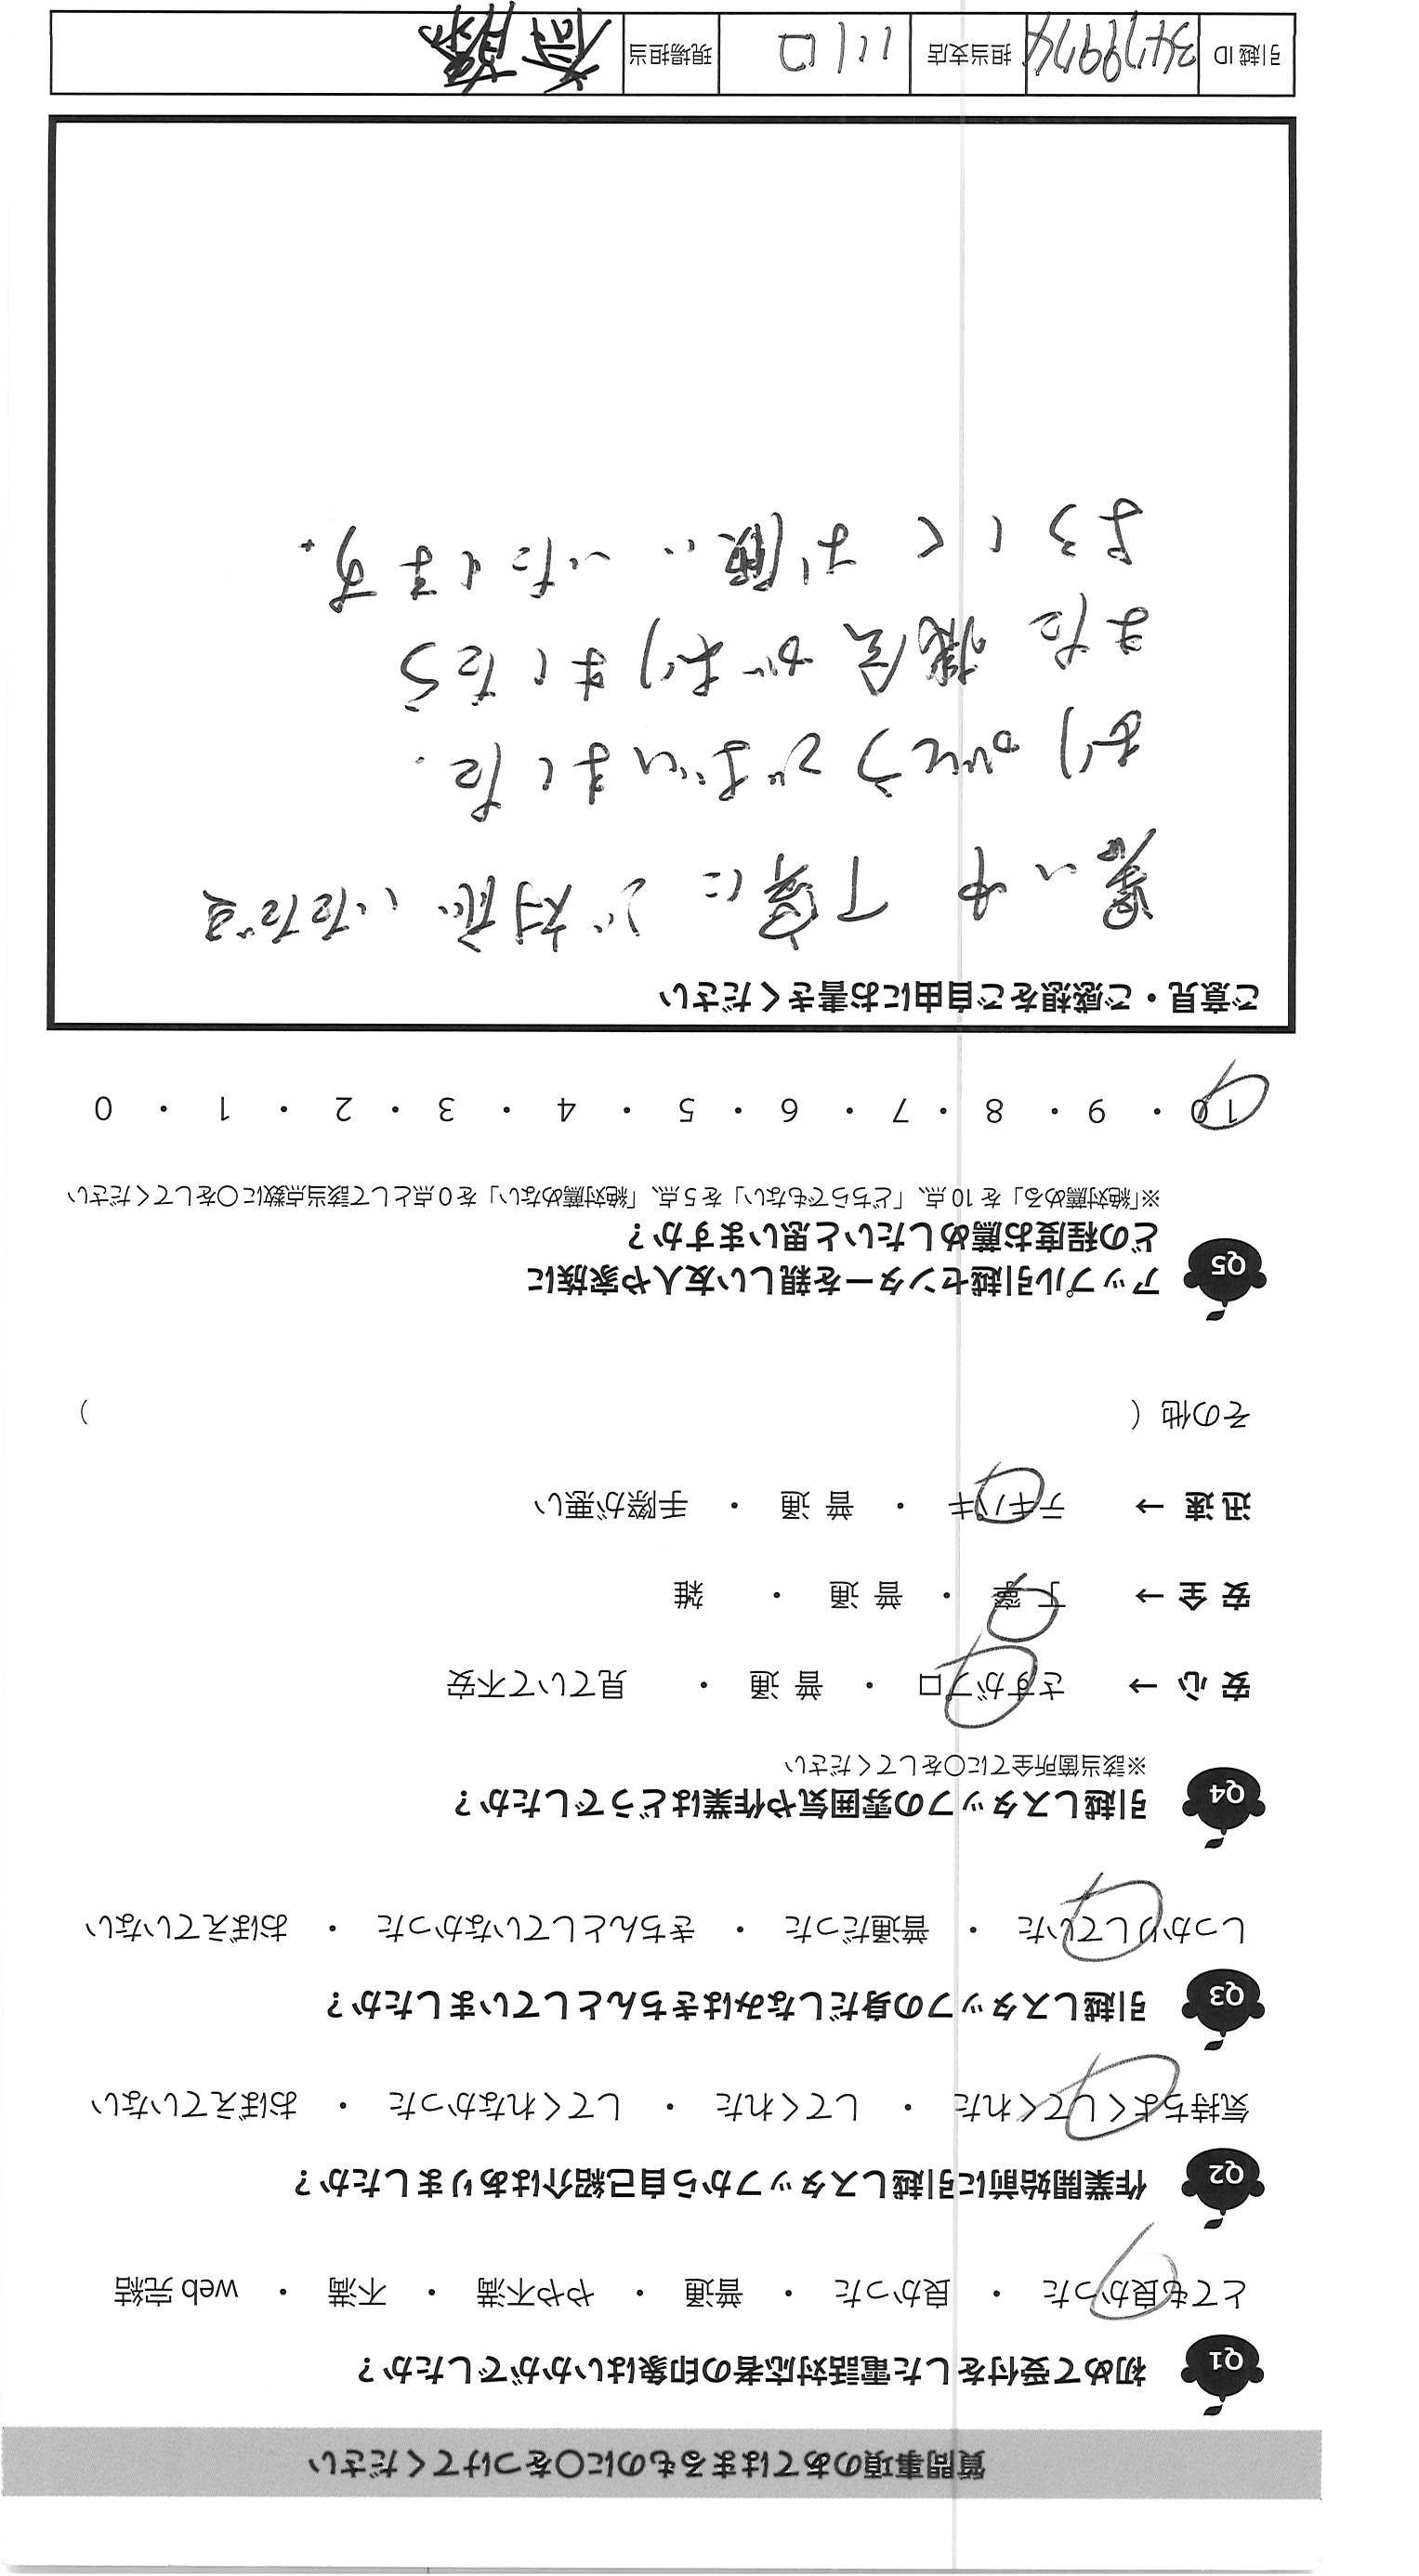 質問事項のあてはまるものに○をつけてください
Q1 初めて受付をした電話対応者の印象はいかがでしたか？
とても良かった ・ 良かった ・ 普通 ・ やや不満 ・ 不満 ・ web 完結
Q2 作業開始前に引越しスタッフから自己紹介はありましたか？
気持ちよくしてくれた ・ してくれた ・ してくれなかった ・ おぼえていない
Q3 引越しスタッフの身だしなみはきちんとしていましたか？
しっかりしていた ・ 普通だった ・ きちんとしていなかった ・ おぼえていない
Q4 引越しスタッフの雰囲気や作業はどうでしたか？
※該当箇所全てに○をしてください
安 心 → さすがプロ ・ 普 通 ・ 見ていて不安
安 全 → 丁 寧 ・ 普 通 ・ 雑
迅 速 → テキパキ ・ 普 通 ・ 手際が悪い
その他（ ）
Q5 アップル引越センターを親しい友人や家族に
どの程度お薦めしたいと思いますか？
※「絶対薦める」を 10 点、「どちらでもない」を 5 点、「絶対薦めない」を 0 点として該当点数に○をしてください
10 ・ 9 ・ 8 ・ 7 ・ 6 ・ 5 ・ 4 ・ 3 ・ 2 ・ 1 ・ 0
ご意見・ご感想をご自由にお書きください
暑い中 丁寧に ご対応いただき
ありがとうございました．
また機会がありましたら
よろしくお願いいたします．
引越 ID 担当支店 川口 現場担当 斎藤